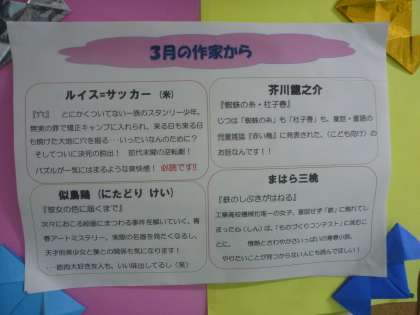 3月の作家から
ルイス=サッカー（米）
『穴』 とにかくついてない一族のスタンリー少年。
無実の罪で矯正キャンプに入れられ、来る日も来る日
も焼けた大地に穴を掘る…いったいなんのために？
そしてついに決死の脱出！ 前代未聞の逆転劇！
パズルが一気にはまるような爽快感！ 必読です!!
芥川龍之介
『蜘蛛の糸・杜子春』
じつは「蜘蛛の糸」も「杜子春」も、童話・童謡の
児童雑誌『赤い鳥』に発表された、〈こども向け〉の
お話なんです！！
似鳥鶏（にたどり けい）
『彼女の色に届くまで』
次々におこる絵画にまつわる事件を解いていく、青
春アートミステリー。実際の名画を見たくなるし、
天才的美少女と僕との関係も気になります！
…筋肉大好き友人も、いい味出してるし（笑）
まはら三桃
『鉄のしぶきがはねる』
工業高校機械科唯一の女子、冒頭せず「鉄」に触れてし
まった心（しん）は、「ものづくりコンテスト」に挑むこ
とに。 情熱とさわやかさいっぱいの青春小説。
やりたいことが見つからない人にも読んでほしい！